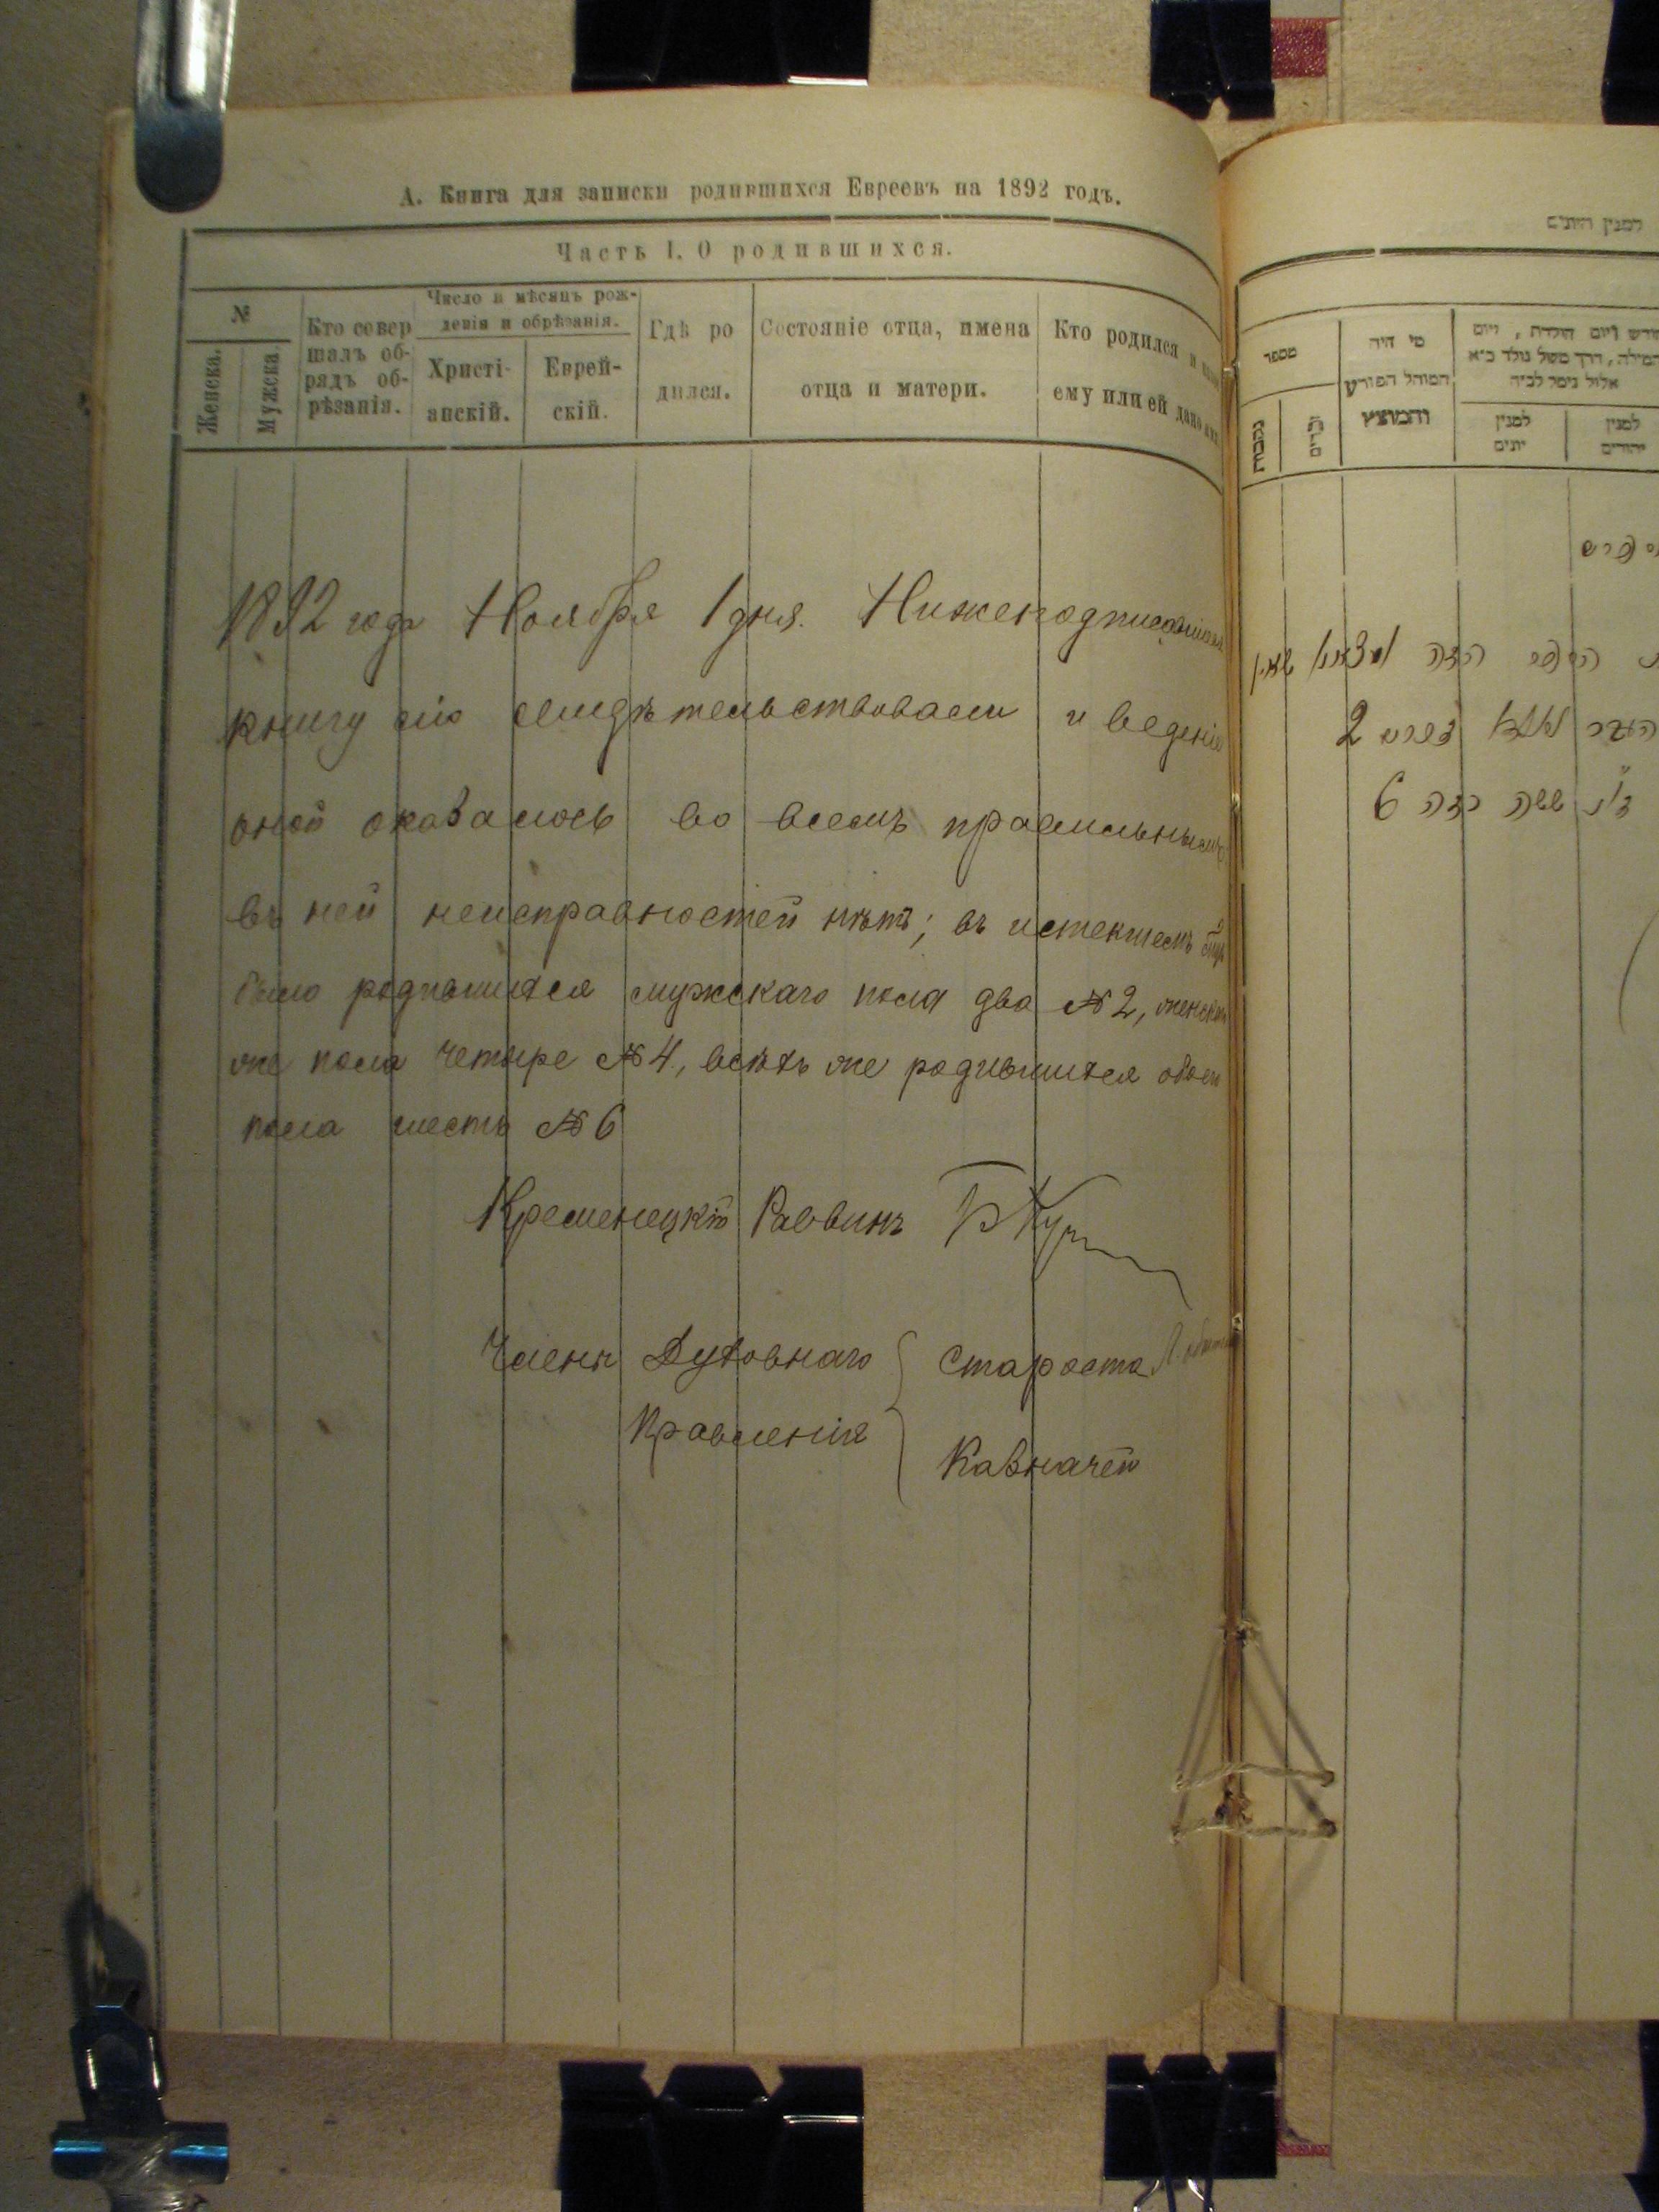 А. Книга для записки родившихся Евреевъ на 1892 годъ.
Часть I. О родившихся.
№
Женска.
Мужска.
Кто совер
шалъ об-
рядъ об-
рѣзанія.
Число и мѣсяцъ рож-
денія и обрѣзанія.
Христі-
анскій.
Еврей-
скій.
Гдѣ ро
дился.
Состояніе отца, имена
отца и матери.
Кто родился и
ему или ей дано
1892 года Ноября 1 дня. Нижеподписавшіеся
книгу сію свидѣтельствовали и веденіе
оной оказалось во всемъ правильнымъ
въ ней неисправностей нѣтъ; въ истекшемъ
было родившихся мужскаго пола два №2, женскаго
же пола четыре №4, всѣхъ же родившихся обоего
пола шесть №6
Кременецкій Раввинъ
Члены Духовнаго
Правленія
Староста
Казначей
למנין היונים
מספר
נקבות
זכרים
מי היה
המוהל הפורע
והמוצץ
חודש ויום הולדת, ויום
המילה, דרך משל נולד כ״א
אלול נימל לב״ה
למנין
יונים
למנין
יהודים
הספר הזה
2
ששה 6